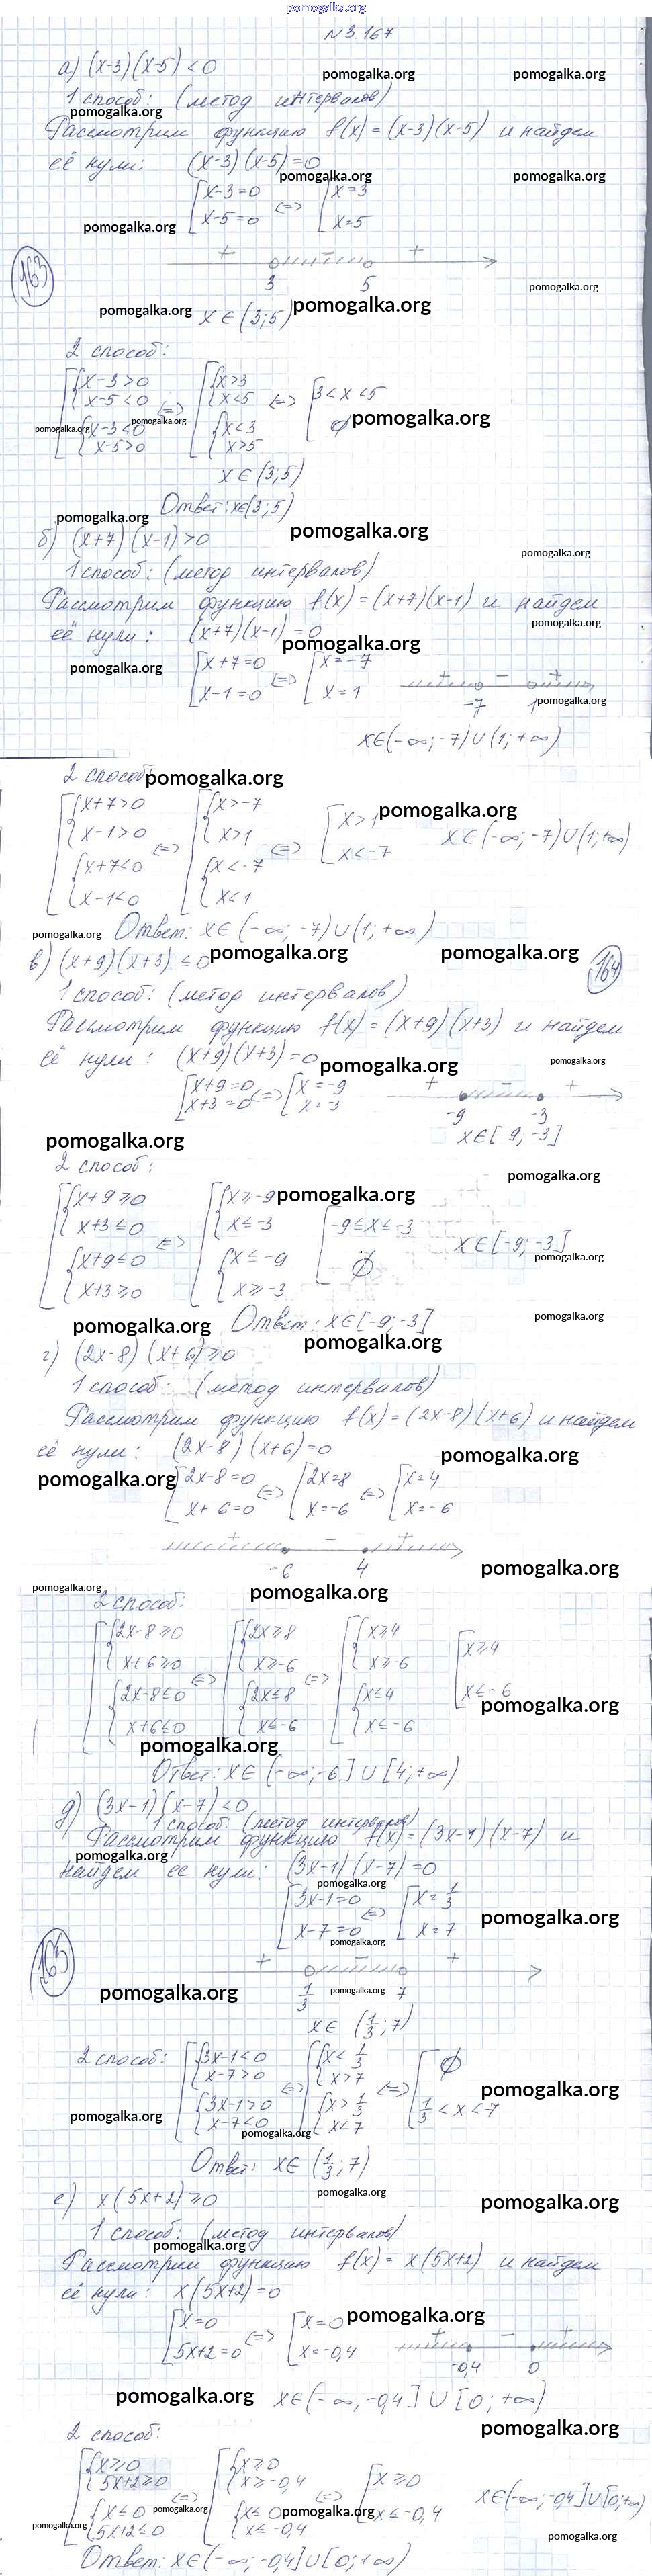 pomogalka.org
№3.167
а) (x-3)(x-5)<0
1 способ: (метод интервалов)
Рассмотрим функцию f(x) = (x-3)(x-5) и найдем
её нули: (x-3)(x-5)=0
[x-3=0 <=> [x=3
[x-5=0 [x=5
+ - +
163
3 5
x∈(3;5)
2 способ:
{x-3>0 {x>3
{x-5<0 <=> {x<5 <=> [3<x<5
{x-3<0 {x<3 ∅
{x-5>0 {x>5
x∈(3;5)
Ответ: x∈(3;5)
б) (x+7)(x-1)>0
1 способ: (метод интервалов)
Рассмотрим функцию f(x) = (x+7)(x-1) и найдем
её нули: (x+7)(x-1)=0
[x+7=0 <=> [x=-7 + - +
[x-1=0 [x=1 -7 1
x∈(-∞;-7)∪(1;+∞)
2 способ:
{x+7>0 {x>-7
{x-1>0 <=> {x>1 <=> [x>1 x∈(-∞;-7)∪(1;+∞)
{x+7<0 {x<-7 [x<-7
{x-1<0 {x<1
Ответ: x∈(-∞;-7)∪(1;+∞)
в) (x+9)(x+3)≤0
164
1 способ: (метод интервалов)
Рассмотрим функцию f(x) = (x+9)(x+3) и найдем
её нули: (x+9)(x+3)=0
[x+9=0 <=> [x=-9 + - +
[x+3=0 [x=-3 -9 -3
x∈[-9;-3]
2 способ:
{x+9≥0 {x≥-9
{x+3≤0 <=> {x≤-3 [-9≤x≤-3 x∈[-9;-3]
{x+9≤0 {x≤-9 ∅
{x+3≥0 {x≥-3
Ответ: x∈[-9;-3]
г) (2x-8)(x+6)≥0
1 способ: (метод интервалов)
Рассмотрим функцию f(x) = (2x-8)(x+6) и найдем
её нули: (2x-8)(x+6)=0
[2x-8=0 <=> [2x=8 <=> [x=4
[x+6=0 [x=-6 [x=-6
+ - +
-6 4
2 способ:
{2x-8≥0 {2x≥8 {x≥4 [x≥4
{x+6≥0 <=> {x≥-6 <=> {x≥-6
{2x-8≤0 {2x≤8 {x≤4 [x≤-6
{x+6≤0 {x≤-6 {x≤-6
Ответ: x∈(-∞;-6]∪[4;+∞)
д) (3x-1)(x-7)<0
1 способ: (метод интервалов)
Рассмотрим функцию f(x) = (3x-1)(x-7) и
найдем её нули: (3x-1)(x-7)=0
[3x-1=0 <=> [x=1/3
[x-7=0 [x=7
165
+ - +
1/3 7
x∈(1/3;7)
2 способ: {3x-1<0 {x<1/3 ∅
{x-7>0 <=> {x>7 <=>
{3x-1>0 {x>1/3 1/3<x<7
{x-7<0 {x<7
Ответ: x∈(1/3;7)
е) x(5x+2)≥0
1 способ: (метод интервалов)
Рассмотрим функцию f(x) = x(5x+2) и найдем
её нули: x(5x+2)=0
[x=0 <=> [x=0 + - +
[5x+2=0 [x=-0,4 -0,4 0
x∈(-∞,-0,4]∪[0;+∞)
2 способ:
{x≥0 {x≥0
{5x+2≥0 <=> {x≥-0,4 <=> [x≥0 x∈(-∞;-0,4]∪[0;+∞)
{x≤0 {x≤0 [x≤-0,4
{5x+2≤0 {x≤-0,4
Ответ: x∈(-∞;-0,4]∪[0;+∞)